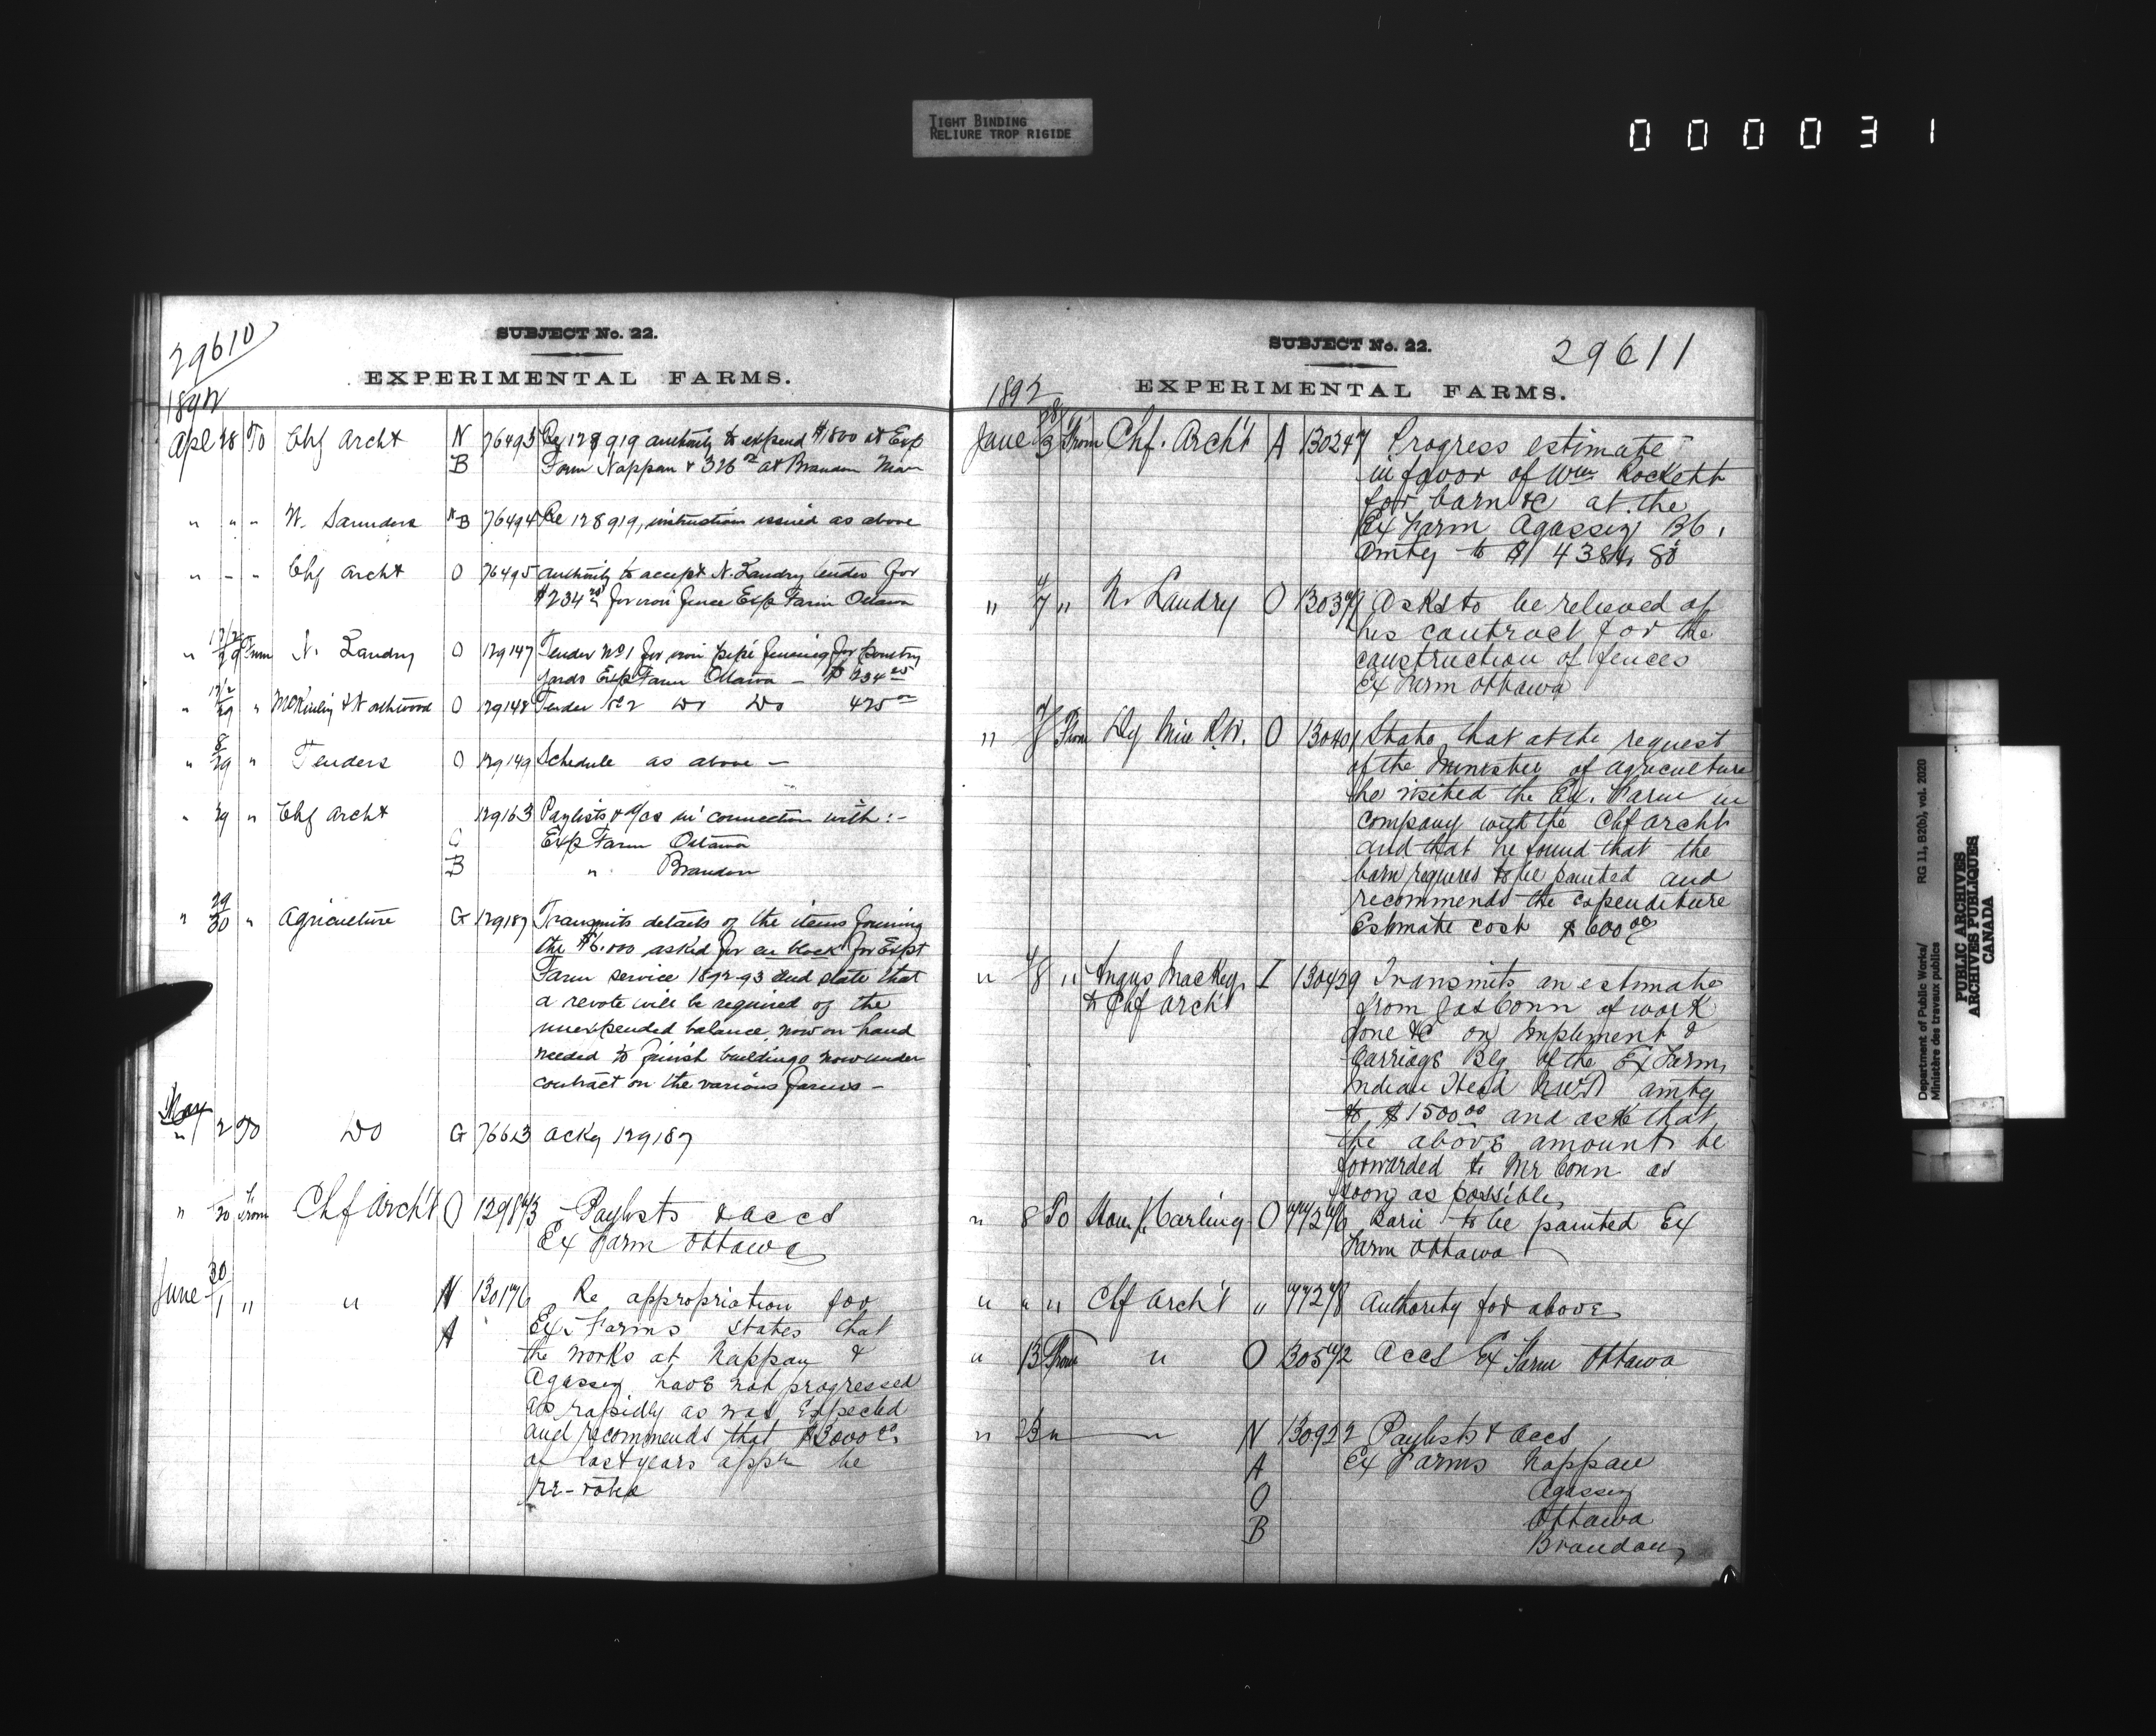 TIGHT BINDING
RELIURE TROP RIGIDE
000031
29610
SUBJECT No. 22.
EXPERIMENTAL FARMS.
1892
Apl 28 To Chf Archt N 76493 Re 128919 authority to expend $1800 at Exp
B Farm Nappan & 326 00 at Brandon Man
" " " W. Saunders N B 76494 Re 128919, instruction issued as above
" - " Chf Archt O 76495 Authority to accept N. Landry tender for
$234 25 for iron fence Exp Farm Ottawa
" 29 From N. Landry O 129147 Tender No 1 for iron pipe fencing for poultry
yards Exp Farm Ottawa - $234 25
" 29 " McKinley & Northwood O 129148 Tender No 2 Do Do 475 00
" 8/29 " Tenders O 129149 Schedule as above -
" 29 " Chf Archt 129163 Paylists & a/cs in connection with :-
O Exp Farm Ottawa
B " Brandon
" 29/30 " Agriculture G 129187 Transmits details of the items forming
the $6,000 asked for en block for Expt
Farm service 1892-93 and state that
a revote will be required of the
unexpended balance now on hand
needed to finish buildings now under
contract on the various farms -
May
" 2 To Do G 76613 Ackg 129187
" 20 From Chf Arch't O Paylists & accs
Ex Farm Ottawa
June 30/1 " " N 130176 Re appropriation for
A Ex. Farms states that
the works at Nappan &
Agassiz have not progressed
as rapidly as was Expected
and recommends that $3000
of last years appn be
re-voted
SUBJECT No. 22.
29611
EXPERIMENTAL FARMS.
1892
June 3 From Chf. Arch't A 130247 Progress estimate
in favor of Wm Rockett
for barn &c at the
Ex Farm Agassiz BC,
amtg to $
" 4/7 " N. Landry O Asks to be relieved of
his contract for the
construction of fences
Ex Farm Ottawa
" From Dy Min O 130401 States that at the request
of the Minister of Agriculture
he visited the Ex. Farm in
company with the Chf Archt
and that he found that the
barn requires to be painted and
recommends the expenditure
Estimate cost $600 00
" 4/8 " Angus Mackay I 130429 Transmits an estimate
to Chf Arch't from Jas Conn of work
done &c on Implement &
Carriage Blg of the Ex Farm,
Indian Head NWT amtg
to $1500 00 and ask that
the above amount be
forwarded to Mr Conn as
soon as possible,
" 8 To Hon J. Carling O Barn to be painted Ex
Farm Ottawa
" " " Chf Arch't " Authority for above
" 13 From " O Accs Ex Farm Ottawa
" 23 " " N 130922 Paylists & accs
A Ex Farms Nappan
O Agassiz
B Ottawa
Brandon,
Department of Public Works/
Ministère des travaux publics
RG 11, B2(b), vol. 2020
PUBLIC ARCHIVES
ARCHIVES PUBLIQUES
CANADA